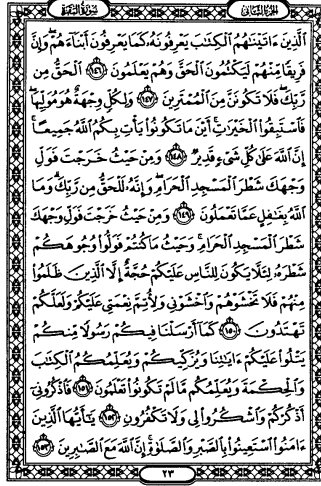 الجزء الثاني سورة البقرة
الَّذِينَ ءَاتَيْنَٰهُمُ الْكِتَٰبَ يَعْرِفُونَهُۥ كَمَا يَعْرِفُونَ أَبْنَآءَهُمْ وَإِنَّ
فَرِيقًا مِّنْهُمْ لَيَكْتُمُونَ الْحَقَّ وَهُمْ يَعْلَمُونَ ١٤٦ الْحَقُّ مِن
رَّبِّكَ فَلَا تَكُونَنَّ مِنَ الْمُمْتَرِينَ ١٤٧ وَلِكُلٍّ وِجْهَةٌ هُوَ مُوَلِّيهَا
فَاسْتَبِقُوا الْخَيْرَٰتِ أَيْنَ مَا تَكُونُوا يَأْتِ بِكُمُ اللَّهُ جَمِيعًا
إِنَّ اللَّهَ عَلَىٰ كُلِّ شَىْءٍ قَدِيرٌ ١٤٨ وَمِنْ حَيْثُ خَرَجْتَ فَوَلِّ
وَجْهَكَ شَطْرَ الْمَسْجِدِ الْحَرَامِ وَإِنَّهُۥ لَلْحَقُّ مِن رَّبِّكَ وَمَا
اللَّهُ بِغَٰفِلٍ عَمَّا تَعْمَلُونَ ١٤٩ وَمِنْ حَيْثُ خَرَجْتَ فَوَلِّ وَجْهَكَ
شَطْرَ الْمَسْجِدِ الْحَرَامِ وَحَيْثُ مَا كُنتُمْ فَوَلُّوا وُجُوهَكُمْ
شَطْرَهُۥ لِئَلَّا يَكُونَ لِلنَّاسِ عَلَيْكُمْ حُجَّةٌ إِلَّا الَّذِينَ ظَلَمُوا
مِنْهُمْ فَلَا تَخْشَوْهُمْ وَاخْشَوْنِى وَلِأُتِمَّ نِعْمَتِى عَلَيْكُمْ وَلَعَلَّكُمْ
تَهْتَدُونَ ١٥٠ كَمَآ أَرْسَلْنَا فِيكُمْ رَسُولًا مِّنكُمْ
يَتْلُوا عَلَيْكُمْ ءَايَٰتِنَا وَيُزَكِّيكُمْ وَيُعَلِّمُكُمُ الْكِتَٰبَ
وَالْحِكْمَةَ وَيُعَلِّمُكُم مَّا لَمْ تَكُونُوا تَعْلَمُونَ ١٥١ فَاذْكُرُونِىٓ
أَذْكُرْكُمْ وَاشْكُرُوا لِى وَلَا تَكْفُرُونِ ١٥٢ يَٰٓأَيُّهَا الَّذِينَ
ءَامَنُوا اسْتَعِينُوا بِالصَّبْرِ وَالصَّلَوٰةِ إِنَّ اللَّهَ مَعَ الصَّٰبِرِينَ ١٥٣
٢٣